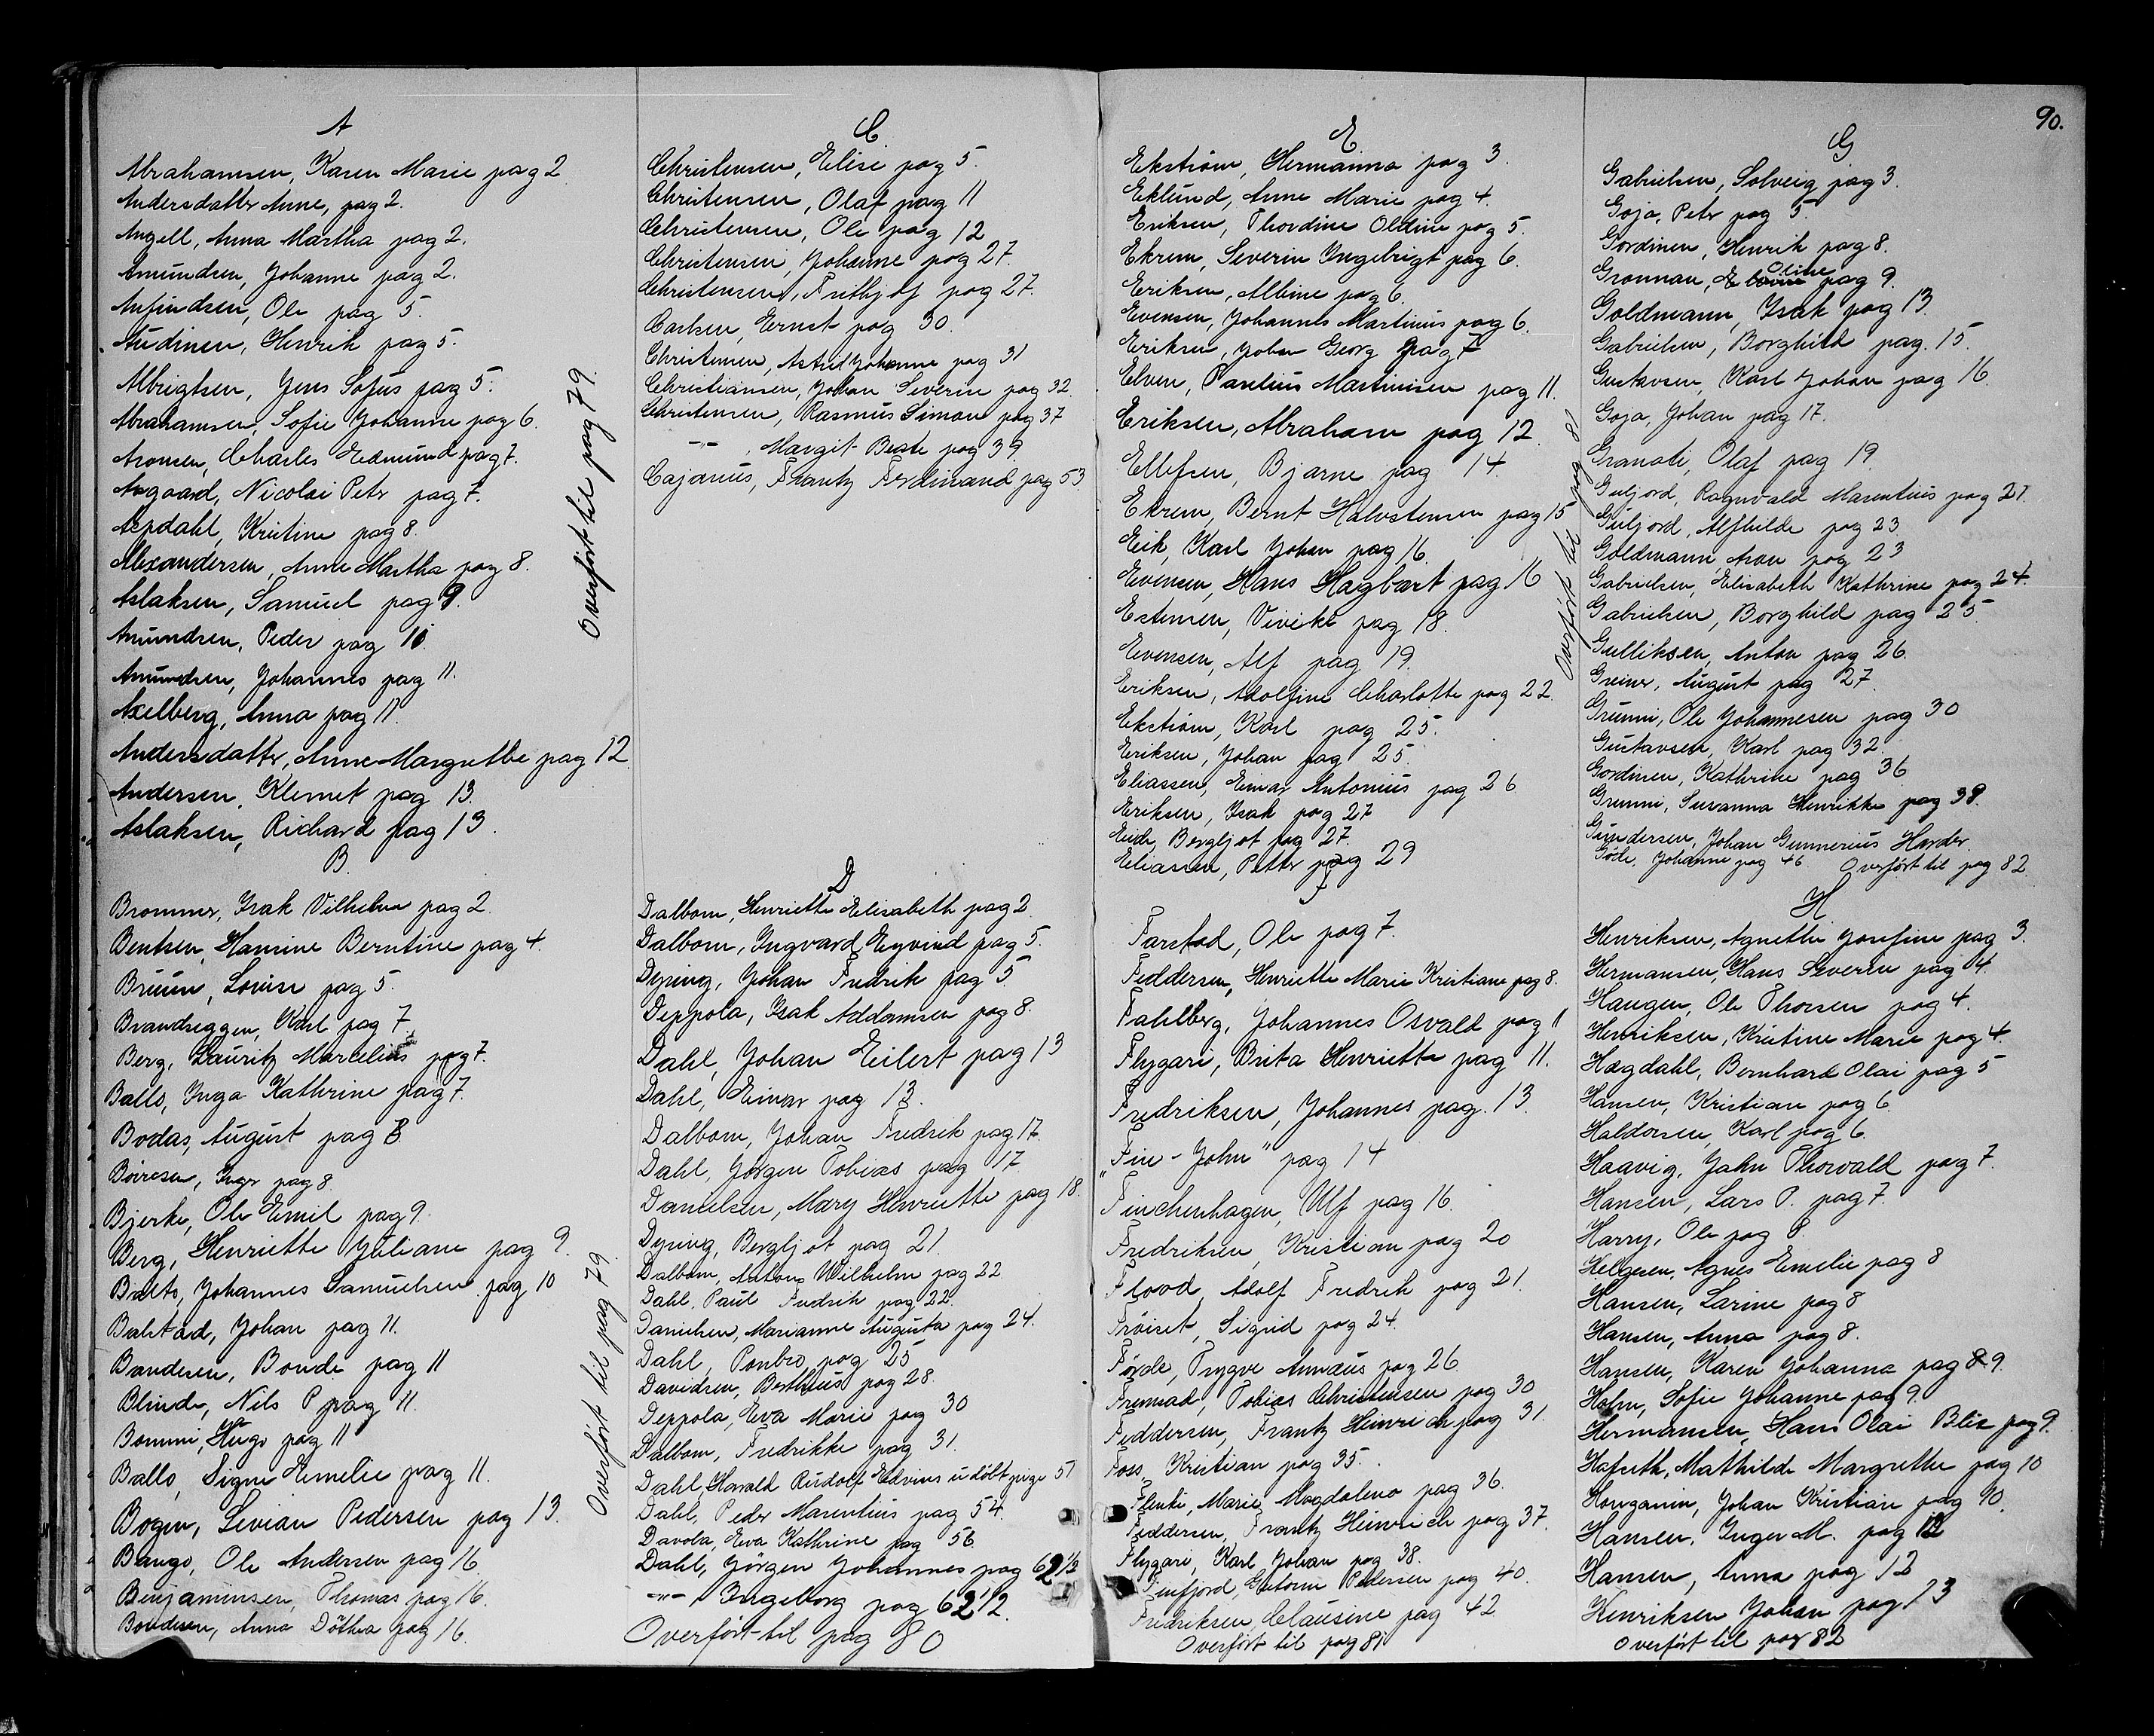 A
Abrahamsen, Karen Marie pag 2
Andersdatter Anne, pag 2.
Angell, Anna Martha pag 2.
Amundsen, Johanne pag 2.
Anfindsen, Ole pag 5.
Audinen, Henrik pag 5.
Albrigtsen, Jens Sofus pag 5.
Abrahamsen, Sofie Johanne pag 6.
Aronsen, Charles Edmund pag 7.
Aagaard, Nicolai Petr pag 7.
Aspdahl, Kristine pag 8.
Alexandersen, Anne Martha pag 8.
Aslaksen, Samuel pag 9.
Amundsen, Peder pag 10.
Amundsen, Johannes pag 11.
Axelberg, Anna pag 11.
Andersdatter, Anne Margrethe pag 12
Andersen, Klemet pag 13.
Aslaksen, Richard pag 13.
Overført til pag 79.
B.
Brommer, Isak Vilhelm pag 2
Bentsen, Hansine Berntine pag 4.
Bruun, Louise pag 5.
Brandseggen, Karl pag 7.
Berg, Lauritz Marcelius pag 7.
Ballo, Inga Kathrine pag 7.
Bodas, August pag 8.
Børresen, Inger pag 8
Bjerke, Ole Emil pag 9.
Berg, Henriette Juliane pag 9.
Balto, Johannes Samuelsen pag 10
Balstad, Johan pag 11.
Bandesen, Bonde pag 11
Blinde, Nils P pag 11.
Bommi, Hugo pag 11
Ballo, Signe Emelie pag 11.
Bogen, Levian Pedersen pag 13.
Bango, Ole Andersen pag 16
Benjaminsen, Thomas pag 16.
Bondesen, Anna Døthea pag 16.
Overført til pag 79
C.
Christensen, Elise pag 5.
Christensen, Olaf pag 11
Christensen, Ole pag 12
Christensen, Johanne pag 27.
Christensen, Frithjof pag 27.
Carlsen, Ernst pag 30.
Christensen, Astrid Johanne pag 31
Christiansen, Johan Severin pag 32.
Christensen, Rasmus Simon pag 37
-"- , Margit Beate pag 39.
Cajanus, Frantz Ferdinand pag 53
D
Dalbom, Henriette Elisabeth pag 2
Dalbom, Ingvard Eyvind pag 5.
Dyring, Johan Fredrik pag 5.
Deppola, Isak Addamsen pag 8.
Dahl, Johan Eilert pag 13
Dahl, Einar pag 13.
Dalbom, Johan Fredrik pag 17.
Dahl, Jørgen Tobias pag 17.
Danielsen, Mary Henriette pag 18.
Dyring, Bergljot pag 21.
Dalbom, Anton Wilhelm pag 22
Dahl, Paul Fredrik pag 22.
Danielsen, Marianne Augusta pag 24.
Dahl, Ponbro pag 25
Davidsen, Bertheus pag 28.
Deppola, Eva Marie pag 30
Dalbom, Fredrikke pag 31.
Dahl, Harald Rudolf Edvins udøbt pige 51
Dahl, Peder Marentius pag 54.
Davola, Eva Kathrine pag 56.
Dahl, Jørgen Johannes pag 62 1/2
-"- Ingeborg pag 62 1/2.
Overført til pag 80
90.
E
Ekstrøm, Hermanna pag 3.
Eklund, Anne Marie pag 4.
Eriksen, Thordine Oldine pag 5.
Ekrem, Severin Ingebrigt pag 6.
Eriksen, Albine pag 6.
Evensen, Johannes Martinus pag 6.
Eriksen, John Georg pag 7
Elven, Paulius Martinisen pag 11.
Eriksen, Abraham pag 12.
Ellefsen, Bjarne pag 14.
Ekrem, Bernt Halvstensen pag 15
Eik, Karl Johan pag 16.
Evensen, Hans Hagbart pag 16
Estensen, Viviki pag 18.
Evensen, Alf pag 19.
Eriksen, Adolfine Charlotte pag 22.
Ekstrøm, Karl pag 25.
Eriksen, Johan pag 25.
Eliassen, Einar Antonius pag 26
Eriksen, Isak pag 27
Eide, Bergljot pag 27.
Eliassen, Petter pag 29
Overført til pag 81
F
Farstad, Ole pag 7.
Feddersen, Henriette Marie Kristiane pag 8.
Fahlberg, Johannes Osvald pag 11
Flygari, Brita Henriette pag 11.
Fredriksen, Johannes pag. 13.
"Fin-John" pag 14
Finchenhagen, Ulf pag 16.
Fredriksen, Kristian pag 20
Flood, Adolf Fredrik pag 21.
Frøiset, Sigrid pag 24.
Førde, Trygve Annæus pag 26.
Fremsad, Tobias Christensen pag 30
Feddersen, Frantz Heinrich pag 31.
Foss, Kristian pag 35.
Flenki, Marie Magdalena pag 36.
Feddersen, Frantz Heinrich pag 37.
Flygari, Karl Johan pag 38.
Finfjord, Guttorm Pedersen pag 40.
Fredriksen, Clausine pag 42
Overført til pag 81
G
Gabrielsen, Solveig pag 3.
Goja, Petr pag 5.
Gordinen, Henrik pag 8.
Oline
Gronnan, pag 9.
Goldmann, Isak pag 13
Gabrielsen, Borghild pag. 15.
Gustavsen, Karl Johan pag 16
Goja, Johan pag 17.
Granati, Olaf pag 19.
Guljord, Ragnvald Marentius pag 21.
Guljord, Alfhilde pag 23
Goldmann, Aron pag 23
Gabrielsen, Elisabeth Kathrine pag 24.
Gabrielsen, Borghild pag 25.
Gulliksen, Anton pag 26.
Greiner, August pag 27.
Grunni, Ole Johannesen pag 30
Gustavsen, Karl pag 32.
Gordinen, Kathrine pag 36
Grunni, Susanna Henrikke pag 38.
Gundersen, Johan Gunnerius Harder.
Gøde, Johanne pag 46. Overført til pag 82
H
Henriksen, Agnethe Josefine pag 3.
Hermansen, Hans Severin pag 4.
Haugen, Ole Thorsen pag 4.
Henriksen, Kristine Marie pag 4.
Hægdahl, Bernhard Olai pag 5
Hansen, Kristian pag 6.
Haldorsen, Karl pag 6.
Haavig, Jahn Thorvald pag 7.
Hansen, Lars P. pag 7.
Harry, Ole pag 8.
Helgesen, Agnes Emelie pag 8
Hansen, Larine pag 8
Hansen, Anna pag 8.
Hansen, Karen Johanna pag 8 9.
Holm, Sofie Johanne pag 9.
Hermansen, Hans Olai Blix pag 9.
Hafseth, Mathilde Margrethe pag 10
Honganin, Johan Kristian pag 10.
Hansen, Inger M. pag 12
Hansen, Anna pag 12
Henriksen Johan pag 13
Overført til pag 82